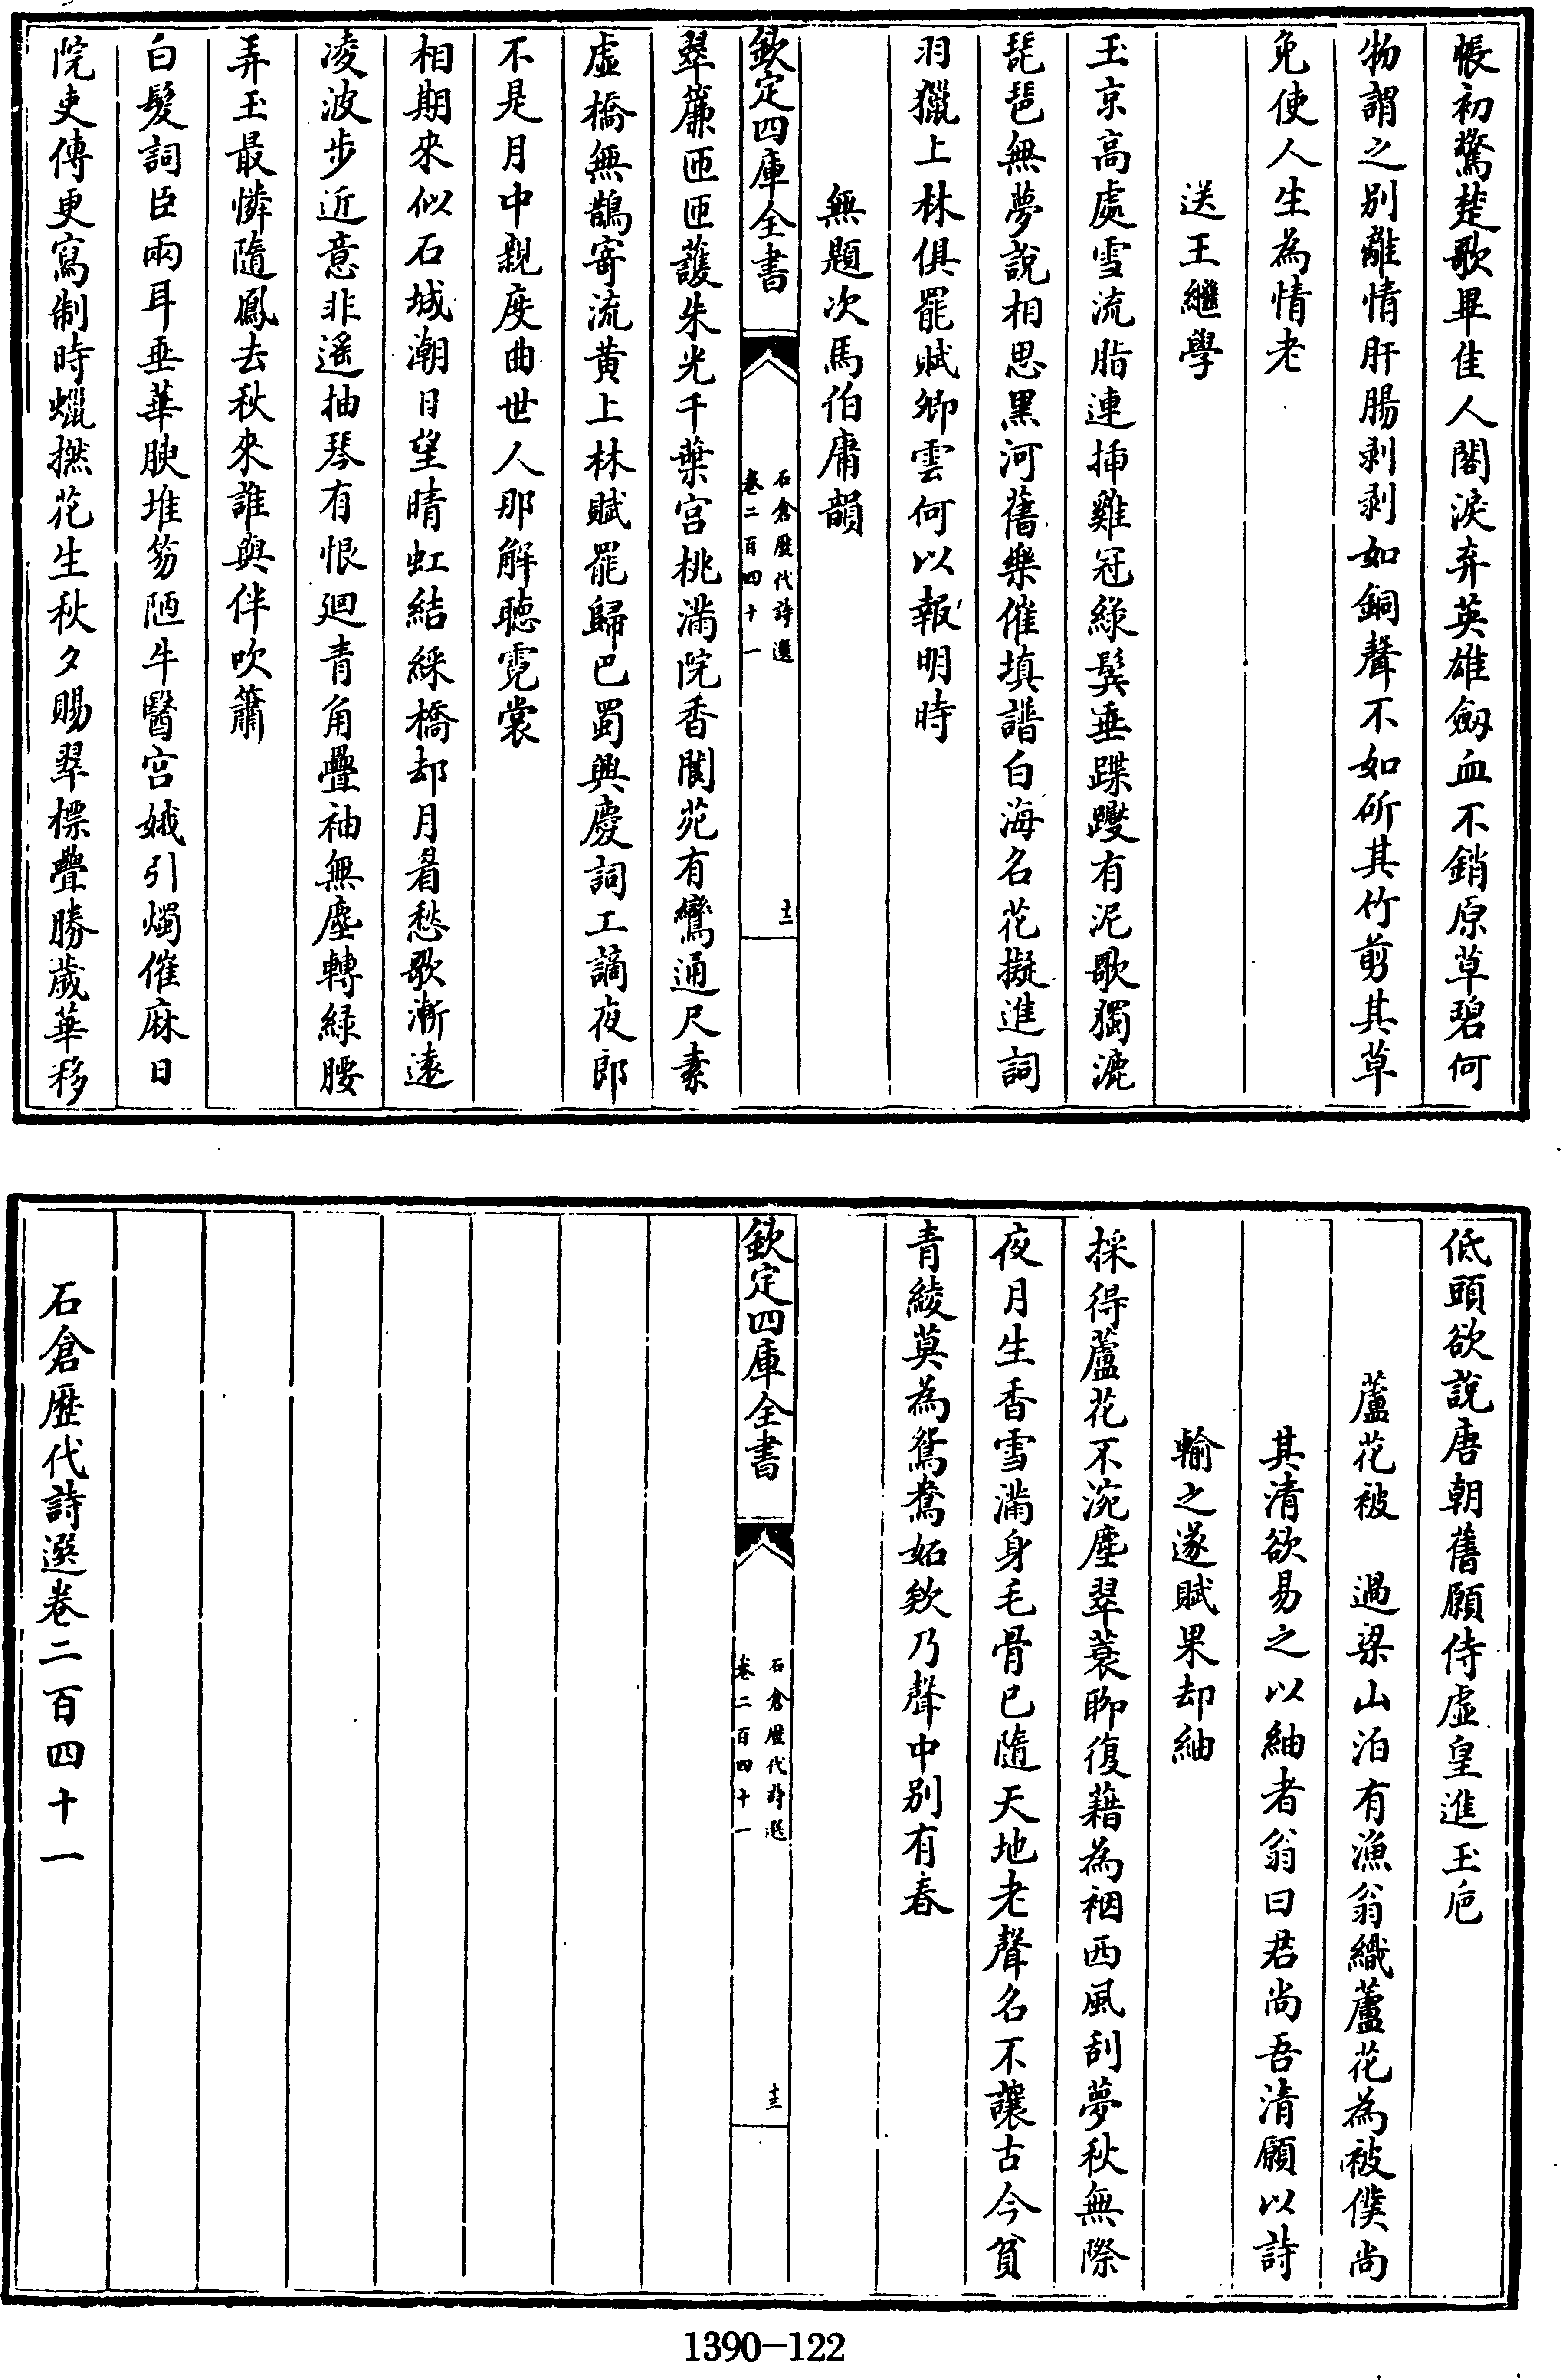 帳初驚楚歌畢佳人閣淚弃英雄劔血不銷原草碧何
物謂之别離情肝腸剥剥如銅聲不如斫其竹剪其草
免使人生為情老
送王繼學
玉京高處雪流脂連揷雞冠綠鬓垂蹀躞有泥歌獨漉
琵琶無夢說相思黑河舊樂催填譜白海名花擬進詞
羽獵上林俱罷賦卿雲何以報明時
無題次馬伯庸韻
欽定四庫全書
石倉歴代詩選
卷二百四十一
十二
翠簾匝匝護朱光千葉宫桃滿院香閬苑有鸞通尺素
虚橋無鵲寄流黄上林賦罷歸巴蜀興慶詞工謫夜郎
不是月中親度曲世人那解聽霓裳
相期來似石城潮日望晴虹結綵橋却月眉愁歌漸遠
凌波步近意非遥抽琴有恨廻青角疊袖無塵轉緑腰
弄玉最憐隨鳳去秋來誰與伴吹簫
白髮詞臣兩耳垂華腴堆笏陋牛醫宫娥引燭催麻日
院吏傳更寫制時蠟撚花生秋夕賜翠標疊勝歲華移
低頭欲說唐朝舊願侍虚皇進玉巵
蘆花被 過梁山泊有漁翁織蘆花為被僕尚
其清欲易之以紬者翁曰君尚吾清願以詩
輸之遂賦果却紬
採得蘆花不涴塵翠蓑聊復藉為裀西風刮夢秋無際
夜月生香雪滿身毛骨已隨天地老聲名不讓古今貧
青綾莫為鴛鴦妬欸乃聲中别有春
欽定四庫全書
石倉歴代詩選
卷二百四十一
十三
石倉歴代詩選卷二百四十一
1390-122